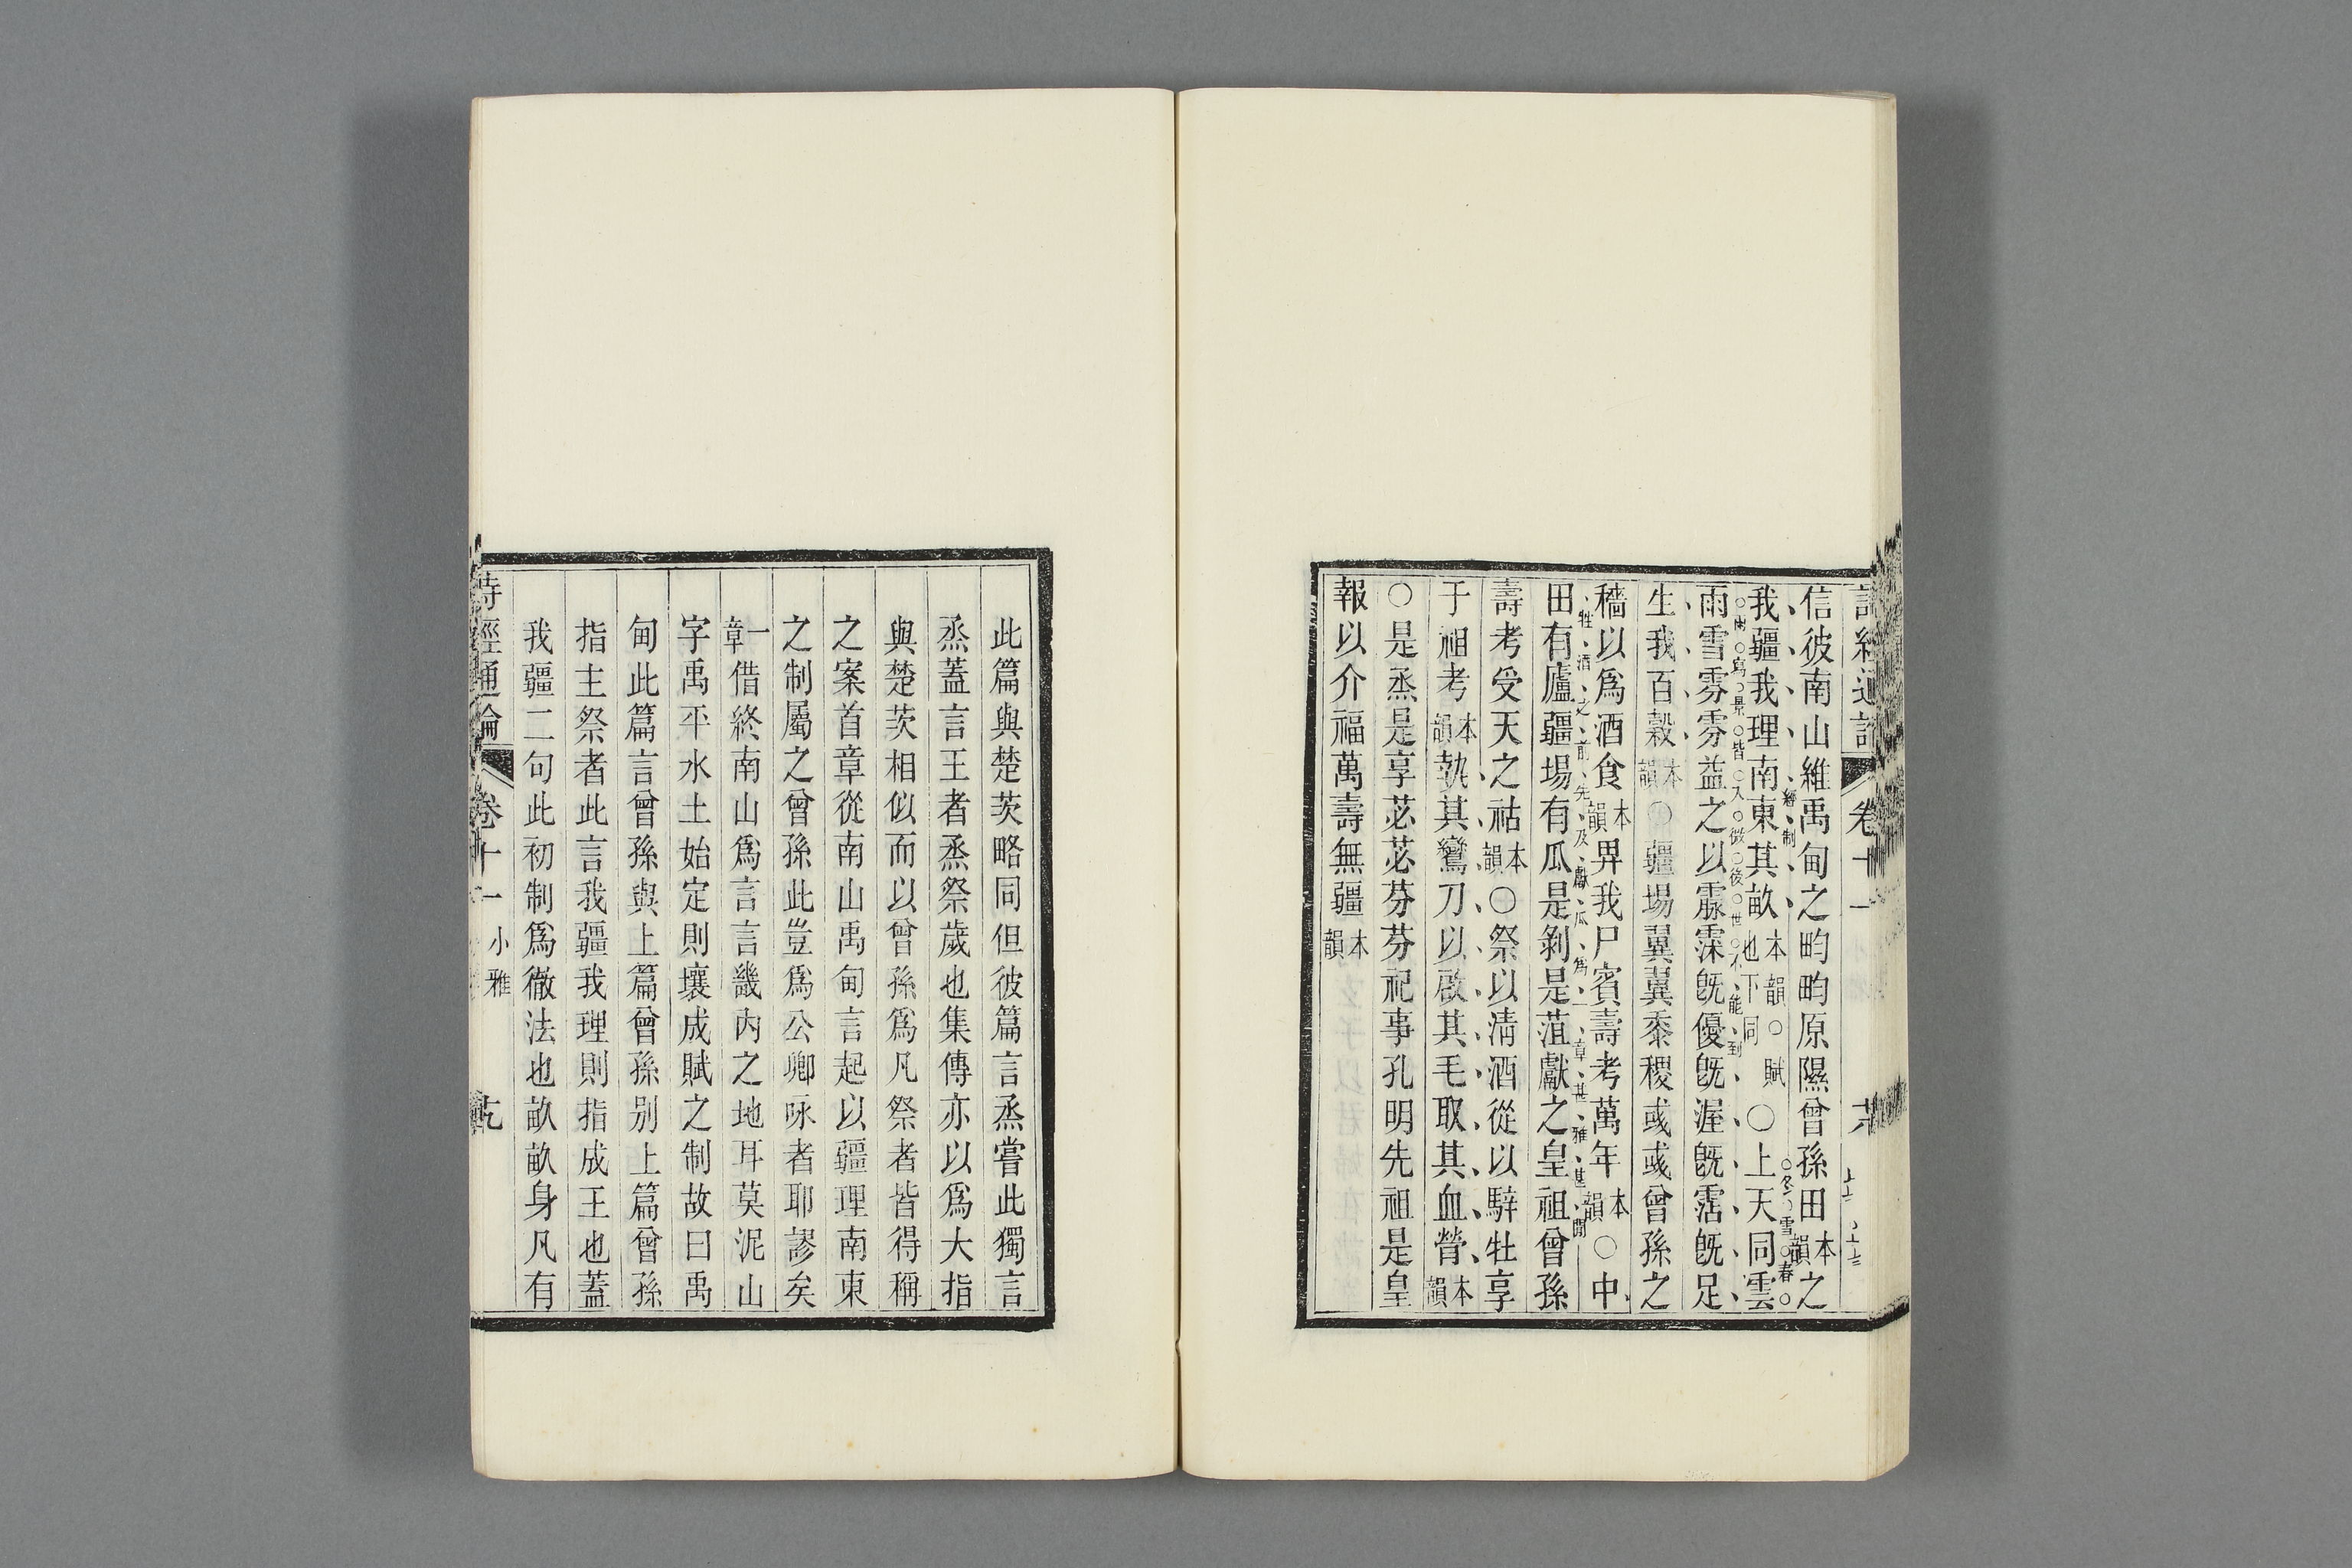 信彼南山維禹甸之畇畇原隰曾孫田本韻之
我疆我理南東其畝本韻○賦也下同○上天同雲
雨雪雰雰益之以霢霂旣優旣渥旣霑旣足
生我百穀本韻○疆埸翼翼黍稷彧彧曾孫之
穡以爲酒食本韻畀我尸賓壽考萬年本韻○中
田有廬疆埸有瓜是剝是菹獻之皇祖曾孫
壽考受天之祜本韻○祭以淸酒從以騂牡享
于祖考本韻執其鸞刀以啟其毛取其血膋本韻
○是烝是享苾苾芬芬祀事孔明先祖是皇
報以介福萬壽無疆本韻
經制
冬雪春
雨寫景皆入微後世不能到
牲酒之前先及獻瓜爲一章甚雅甚閒
卷十一
此篇與楚茨略同但彼篇言烝嘗此獨言
烝蓋言王者烝祭歲也集傳亦以爲大指
與楚茨相似而以曾孫爲凡祭者皆得稱
之案首章從南山禹甸言起以疆理南東
之制屬之曾孫此豈爲公卿咏者耶謬矣
一章借終南山爲言言畿內之地耳莫泥山
字禹平水土始定則壤成賦之制故曰禹
甸此篇言曾孫與上篇曾孫別上篇曾孫
指主祭者此言我疆我理則指成王也蓋
我疆二句此初制爲徹法也畝畝身凡有
詩經通論 卷十一 小雅